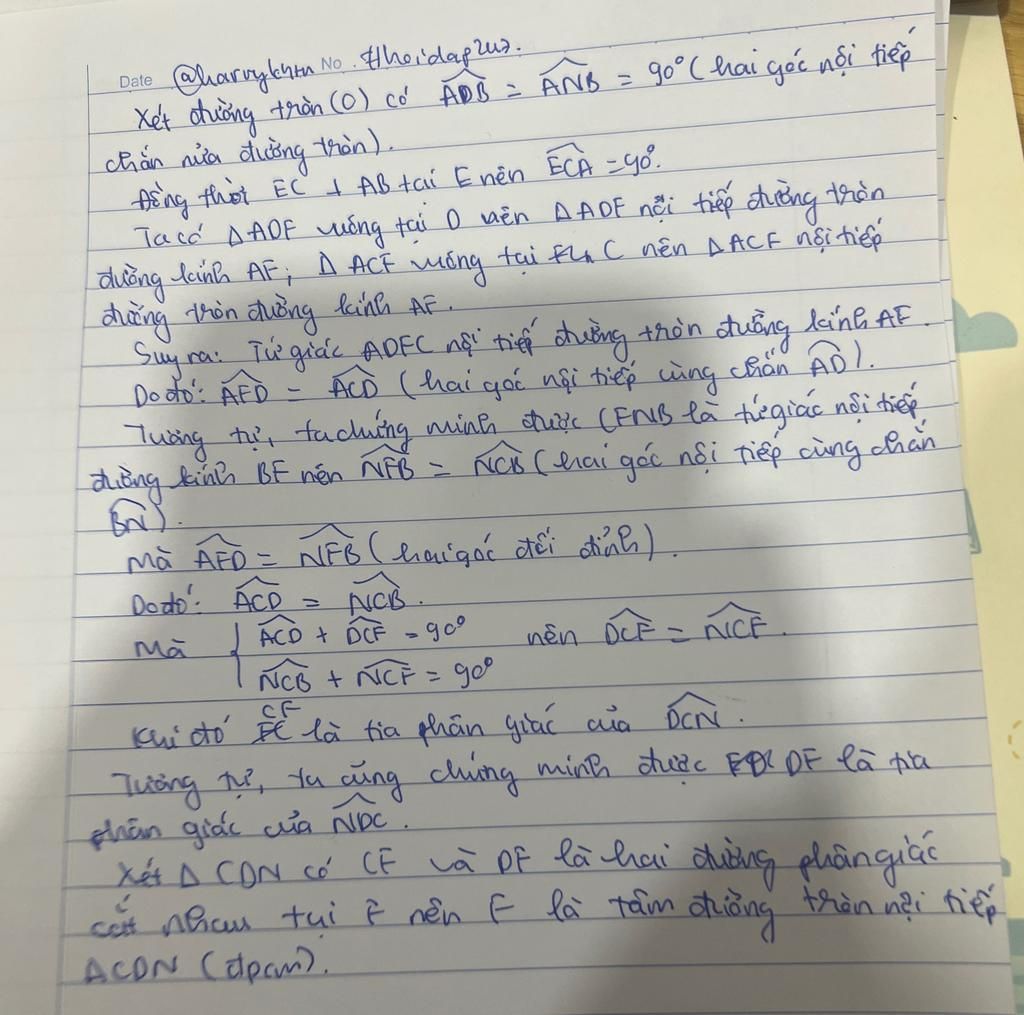 Date @harvykhtn No. #hoidap247.
Xét đường tròn (O) có ADB = ANB = 90° (hai góc nội tiếp
chắn nửa đường tròn).
Đồng thời EC ⊥ AB tại E nên ECA = 90°.
Ta có Δ ADF vuông tại D nên Δ ADF nội tiếp đường tròn
đường kính AF; Δ ACF vuông tại C nên Δ ACF nội tiếp
đường tròn đường kính AF.
Suy ra: Tứ giác ADFC nội tiếp đường tròn đường kính AF.
Do đó: AFD = ACD (hai góc nội tiếp cùng chắn AD).
Tương tự, ta chứng minh được CFNB là tứ giác nội tiếp
đường kính BF nên NFB = NCB (hai góc nội tiếp cùng chắn
BN).
Mà AFD = NFB (hai góc đối đỉnh).
Do đó: ACD = NCB.
Mà { ACD + DCF = 90° nên DCF = NCF.
NCB + NCF = 90°
Khi đó CF là tia phân giác của DCN.
Tương tự, ta cũng chứng minh được DF là tia
phân giác của NDC.
Xét Δ CDN có CF và DF là hai đường phân giác
cắt nhau tại F nên F là tâm đường tròn nội tiếp
ΔCDN (đpcm).